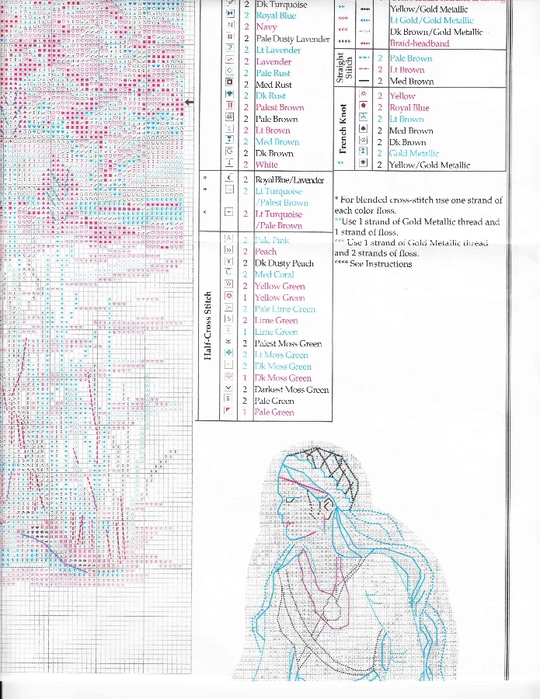 2 Dk Turquoise
2 Royal Blue
2 Navy
2 Pale Dusty Lavender
2 Lt Lavender
2 Lavender
2 Pale Rust
2 Med Rust
2 Dk Rust
2 Palest Brown
2 Pale Brown
2 Lt Brown
2 Med Brown
2 Dk Brown
2 White
2 Royal Blue/Lavender
2 Lt Turquoise
/Palest Brown
2 Lt Turquoise
/Pale Brown
Half-Cross Stitch
2 Pale Pink
2 Peach
2 Dk Dusty Peach
2 Med Coral
2 Yellow Green
1 Yellow Green
2 Pale Lime Green
2 Lime Green
1 Lime Green
2 Palest Moss Green
2 Lt Moss Green
2 Dk Moss Green
1 Dk Moss Green
2 Darkest Moss Green
2 Pale Green
1 Pale Green
Yellow/Gold Metallic
Lt Gold/Gold Metallic
Dk Brown/Gold Metallic
Braid-headband
Straight
Stitch
2 Pale Brown
2 Lt Brown
2 Med Brown
French Knot
2 Yellow
2 Royal Blue
2 Lt Brown
2 Med Brown
2 Dk Brown
2 Gold Metallic
2 Yellow/Gold Metallic
* For blended cross-stitch use one strand of
each color floss.
**Use 1 strand of Gold Metallic thread and
1 strand of floss.
*** Use 1 strand of Gold Metallic thread
and 2 strands of floss.
**** See Instructions